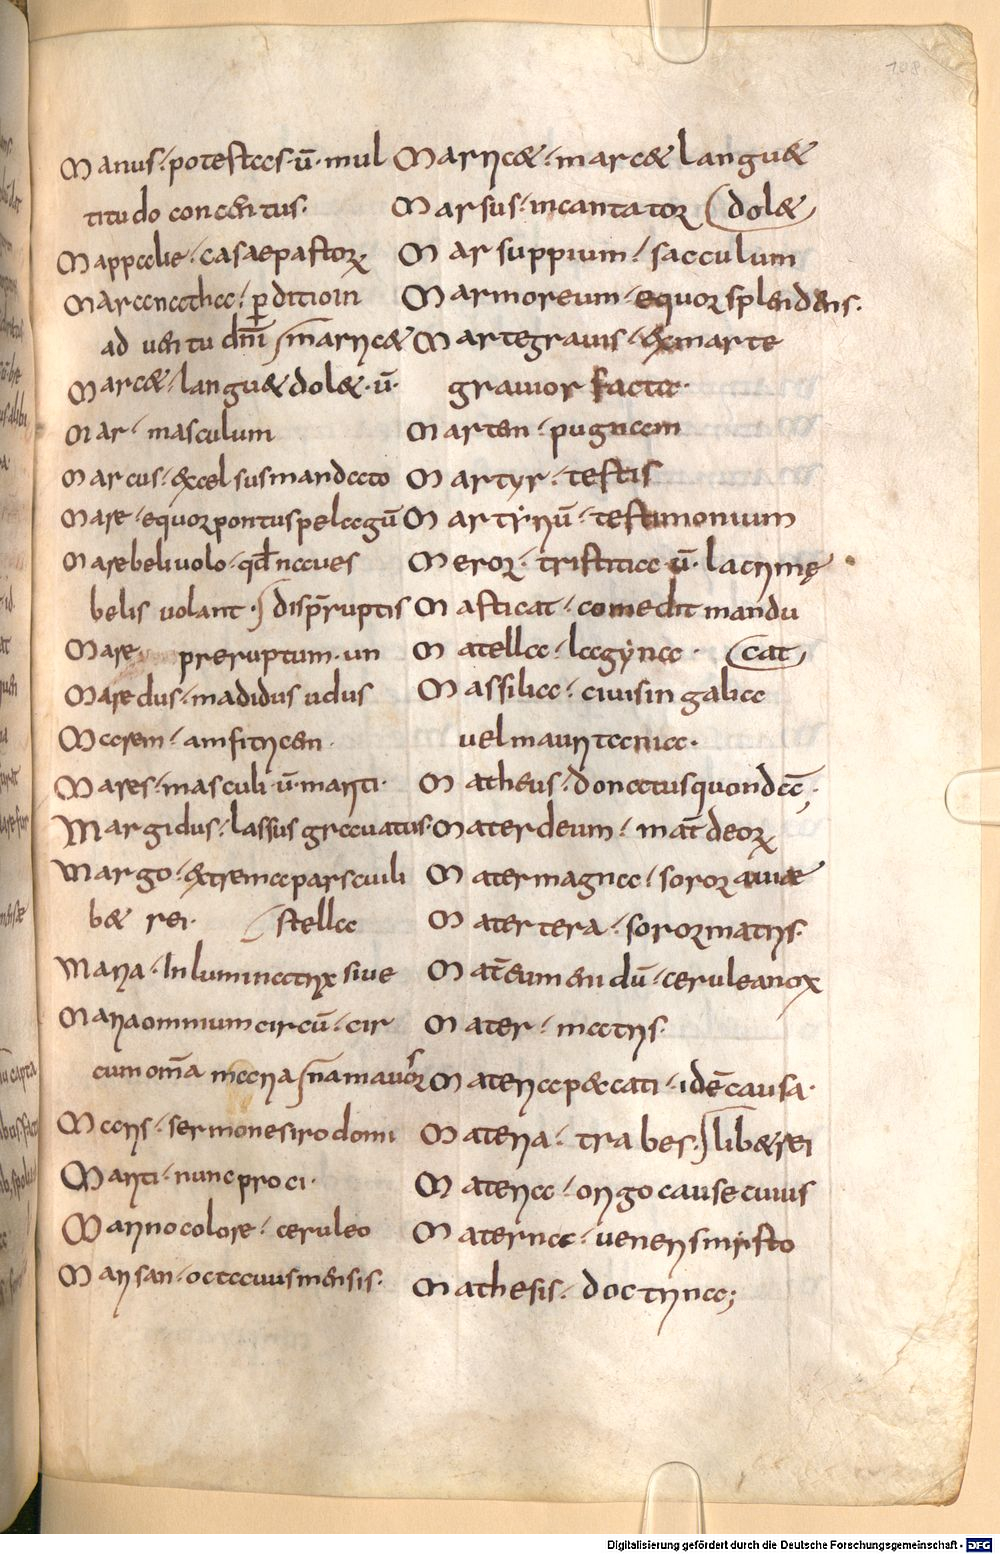 108
Manus · potestas · ū · mul
titudo concentus ·
Mappalie · casae pastorꝝ
Maranatha · ꝑditioin
ad uentu dn̄i ſ marcet
Marcet · languet dolet · ū ·
Mar · masculum
Marcus · excelsus mandato
Mare · equor pontus pelagū
Mare beliuolo · qđ naues
belis uolant · ſ dispr̄ruptis
Mare preruptum · un
Maredus · madidus udus
Marem · amfitricen ·
Mares · masculi · ū · mariti ·
Margidus · lassus grauatus ·
Margo · extrema pars cuili
bet rei · ſ stella
Maria · Inluminatrix siue
Maria omnium circū · cir
cum om̄a maria ſ nam auōr
Maris · sermone siro domi
Mariti · nunc proci ·
Marino colore · ceruleo
Marsan · octauus mensis ·
Marcet · marcet languet
Marsus · incantator (dolet)
Marsuppium · sacculum
Marmoreum · equor splendens ·
Martegrauis · ex marte
grauior facta ·
Marten · pugnam
Martyr · testis
Martyriū · testimonium
Meror · tristitia · ū · lacrimę
Masticat · comedit mandu
Matella · lagyna · (cat)
Massilia · ciuis in galia
uel mauritania ·
Matheus · donatus quondā ;
Mater deum · mat̄ deorꝝ
Mater magna · soror auiae
Matertera · soror matris ·
Mat̄ eumenidū · cerulea nox
Mater · matris ·
Materia peccati · idē causa ·
Materia · trabes · ſ libet rei
Materia · origo cause cuius
Materna · ueneris myrsto
Mathesis · doctrina ;
Digitalisierung gefördert durch die Deutsche Forschungsgemeinschaft - DFG